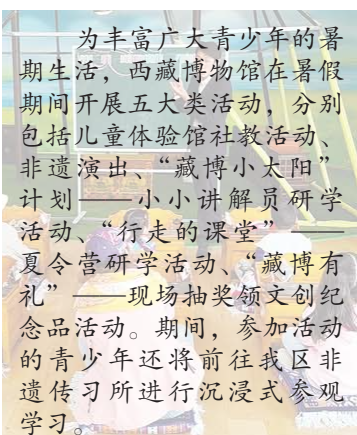 为丰富广大青少年的暑
期生活，西藏博物馆在暑假
期间开展五大类活动，分别
包括儿童体验馆社教活动、
非遗演出、“藏博小太阳”
计划——小小讲解员研学
活动、“行走的课堂”——
夏令营研学活动、“藏博有
礼”——现场抽奖领文创纪
念品活动。期间，参加活动
的青少年还将前往我区非
遗传习所进行沉浸式参观
学习。